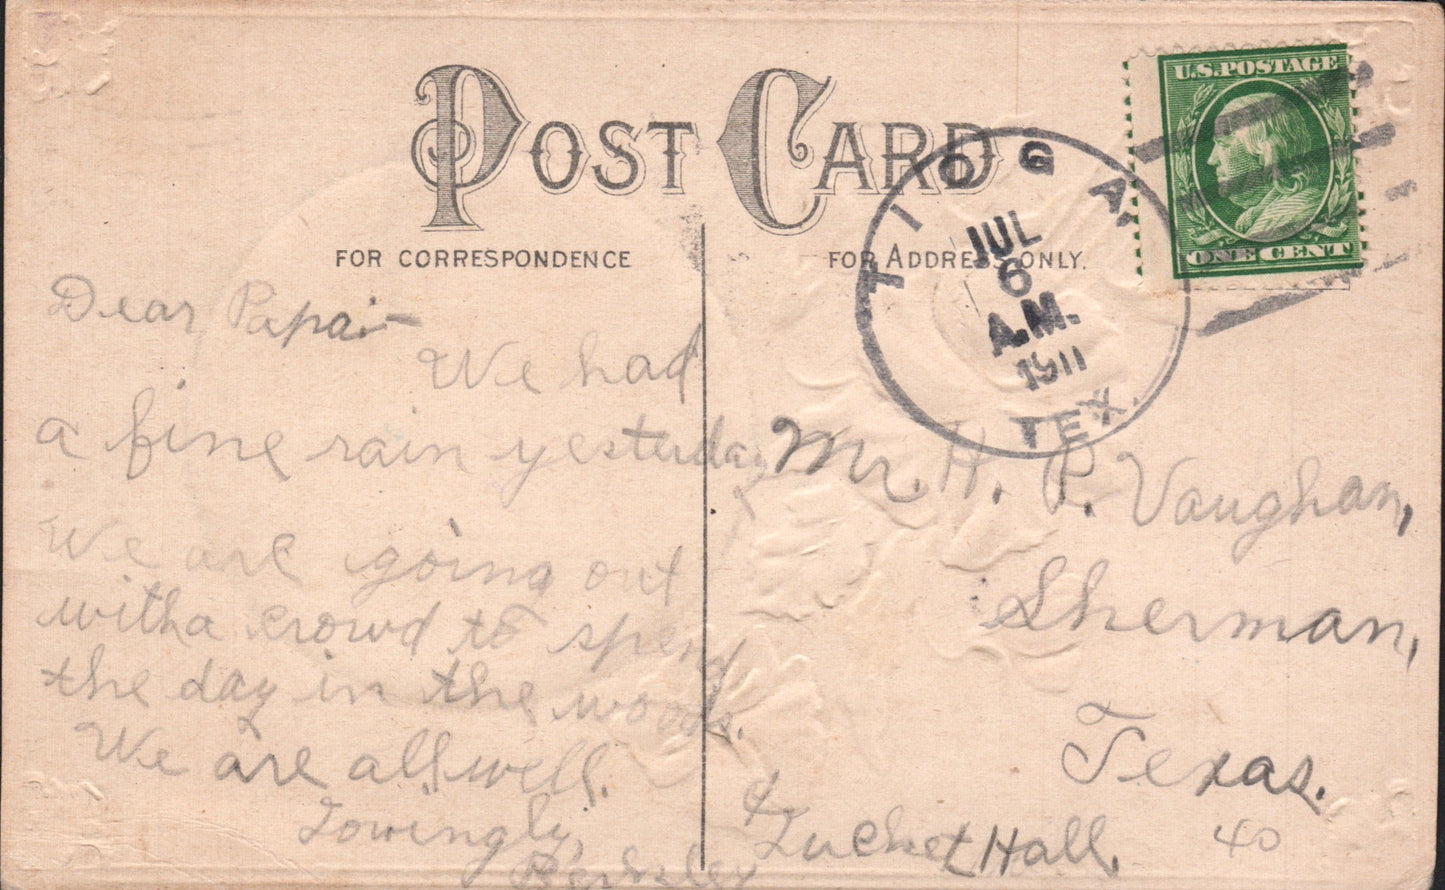 POST CARD
FOR CORRESPONDENCE
FOR ADDRESS ONLY.
U.S. POSTAGE
ONE CENT
TIOGA
JUL
6
A.M.
1911
TEX.
Dear Papa:—
We had
a fine rain yesterday
We are going out
with a crowd to spend
the day in the woods.
We are all well.
Lovingly,
Berksley
Mr. H. P. Vaughan,
Sherman,
Texas.
% Luchet Hall.
40